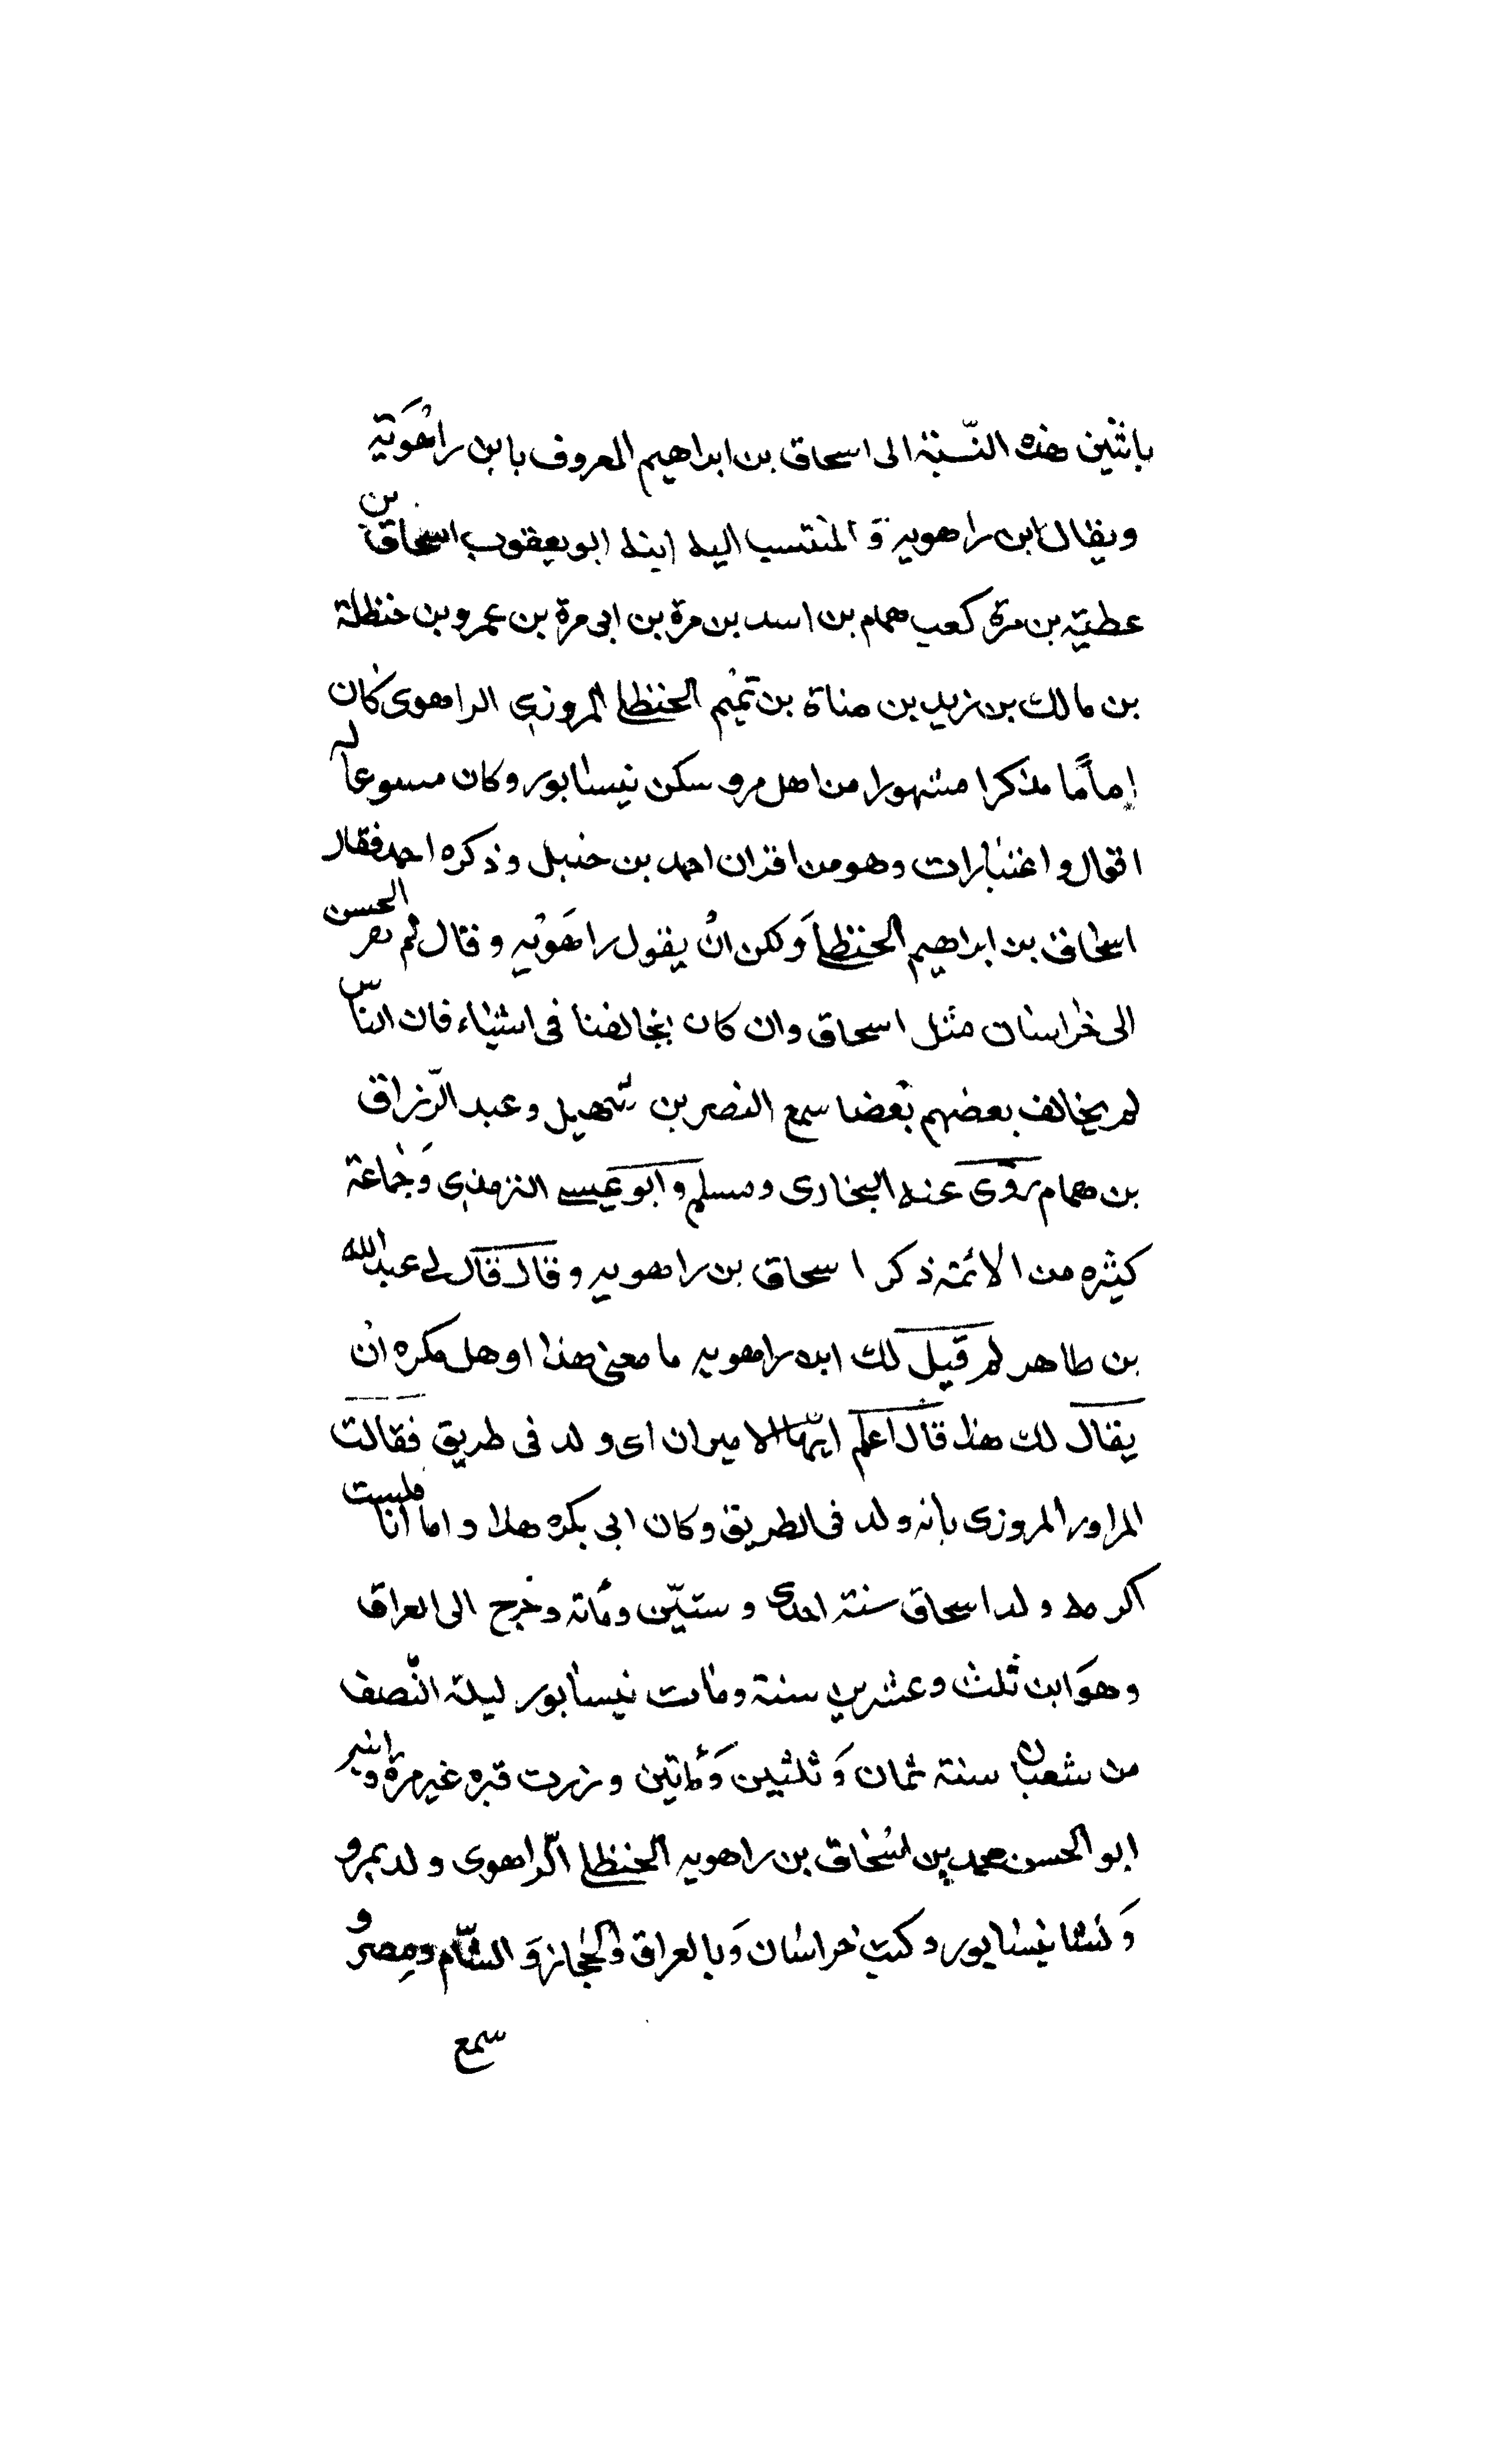 باثنين هذه النّسبة الى اسحاق بن ابراهيم المعروف بابن راهَوَيْه
ويقال ابن راهويه وَ المنتسب اليه ابنه ابو يعقوب اسحاق بن
عطيّه بن مرة كعب همام بن اسد بن مرة بن ابى مرة بن عمرو بن حنظلة
بن مالك بن زيد بن مناة بن تميم الحنظلي المروزي الراهوى كان
إمامًا مذكرا مشهورا من اهل مرو سكن نيسابور وكان مسوعا له
اقوال و اختيارات وهو من اقران احمد بن حنبل وذكره احمد فقال
اسحاق بن ابراهيم الحنظلي وَلكن انْ يقول راهَوَيْه و قال لم يعبر الحسن
الى خراسان مثل اسحاق وان كان يخالفنا فى اشياء فان النّاس
لم يخالف بعضهم بعضا سمع النصر بن شهيل وعبد الرّزاق
بن همام روى عنه البخارى ومسلم وابو عيسى الترمذي وَجماعة
كثيره من الائمّة ذكر اسحاق بن راهويه وقال قال لى عبد الله
بن طاهر لم قيل لك ابن راهويه ما معنى هذا او هل مكره ان
يقال لك هذا قال اعلم ايّها الامير ان اى ولد فى طريق فقالت
المراور المروزى بانه ولد فى الطريق وكان ابى يكره هذا واما انا فلست
اكرهه ولد اسحاق سنة احدى وستّين ومأته وخرج الى العراق
وهوَ ابن ثلث وعشرين سنة ومات نيسابور ليلة النّصف
من شعبان سنة ثمان وَ ثلثين وَمأتين وزرت قبره غير مرة وابنه
ابو الحسن محمد بن اسحاق بن راهويه الحنظلي الرّاهوى ولد بمرو
وَ نشا نيسابور وكتب خراسان وَبالعراق وَالحجاز وَ الشّام ومصر و
سمع